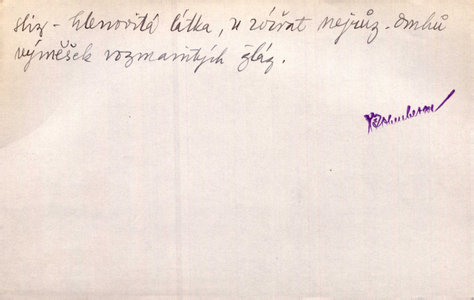 sliz - hlenovitá látka, u zvířat nejrůz. druhů
výměšek rozmanitých žláz.